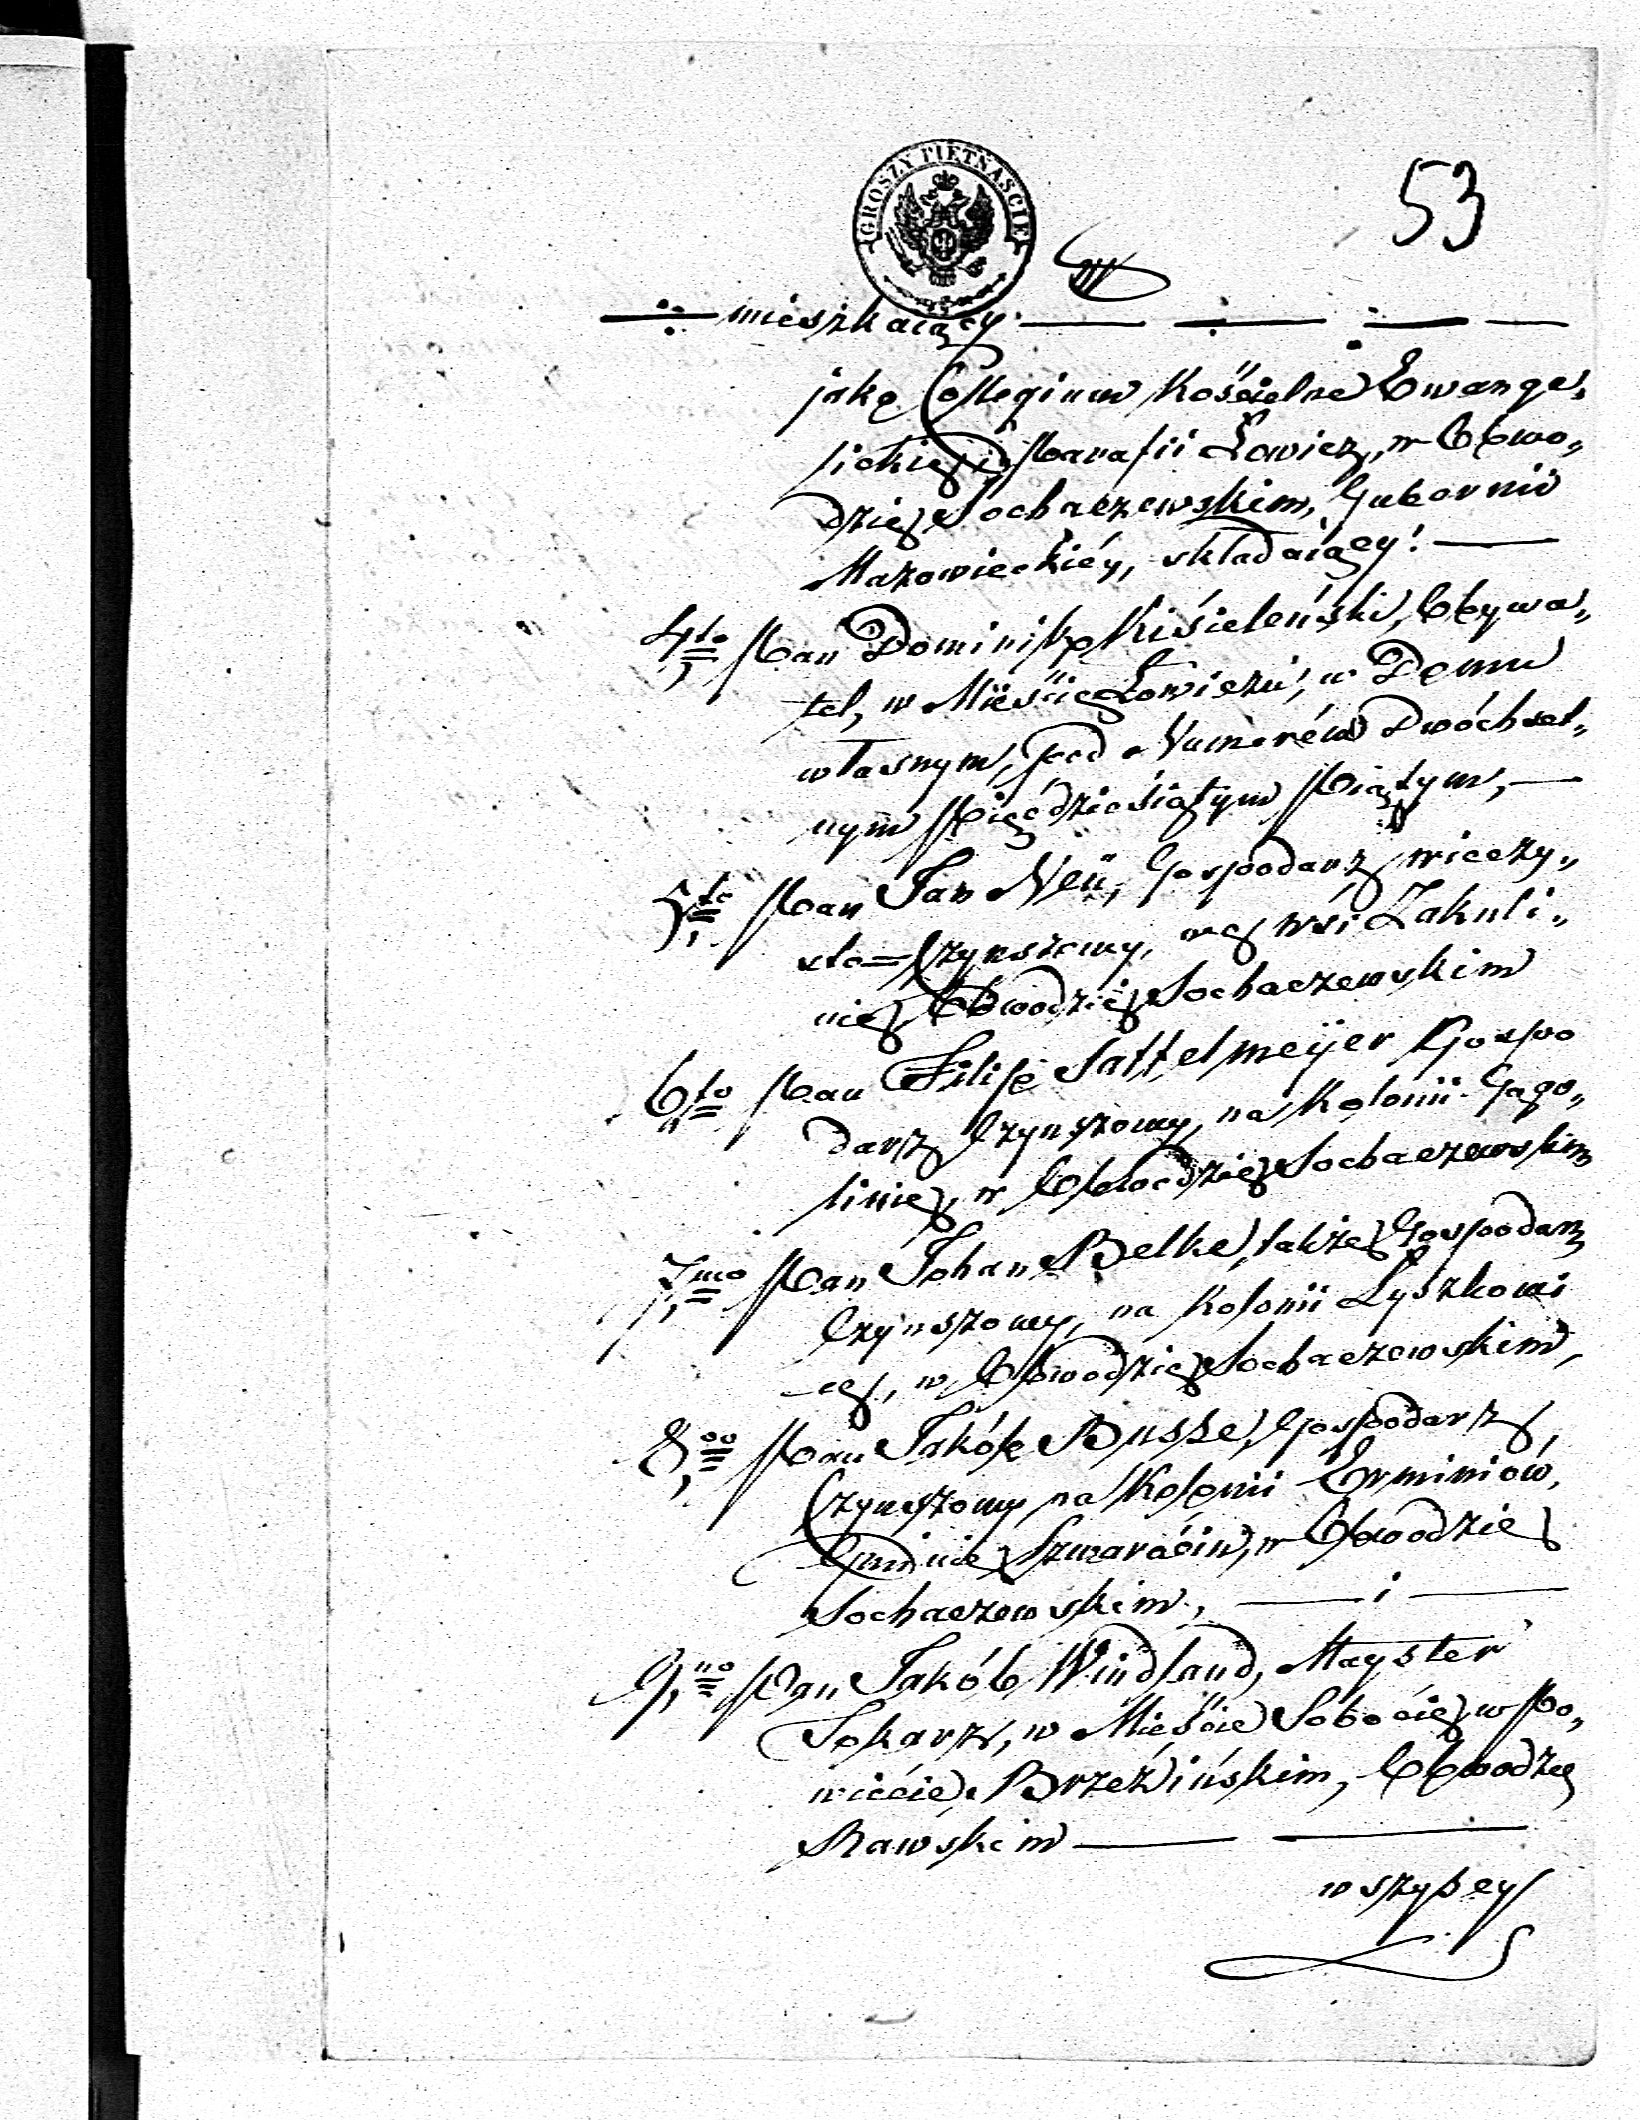 GROSZY PIĘTNAŚCIE
53
mieszkaiący
jako Collegium Kościelne Ewange„
lickiey Parafii Łowicz, w Obwo„
dzie Sochaczewskim, Gubernii
Mazowieckiéy, składaiący:
4,to Pan Dominik Kisieleński, Obywa„
tel, w Mieście Łowiczu, w Domu
własnym, pod Numerém Dwóchset„
nym Pięćdziesiątym Piątym,
5,to Pan Jan Neü, Gospodarz wieczy„
sto=Czynszowy, we wsi Zakuli„
nie, Obwodzie Sochaczewskim
6,to Pan Filip Sattelmeÿer Gospo
darz Czynszowy, na Kolonii Gągo„
linie, w Obwodzie Sochaczewskim
7,mo Pan Johan Belke, także Gospodarz
Czynszowy, na Kolonii Łyszkowi
ce, w Obwodzie Sochaczewskim,
8,vo Pan Jakób Busse, Gospodarz
Czynszowy na Kolonii Erminiów,
Gminie Szwarocin, w Obwodzie
Sochaczewskim, — i —
9,no Pan Jakób Windland, Mayster
Tokarz, w Mieście Sobocie, w Po„
wiecie Brzezińskim, Obwodzie
Rawskim
wszyscy